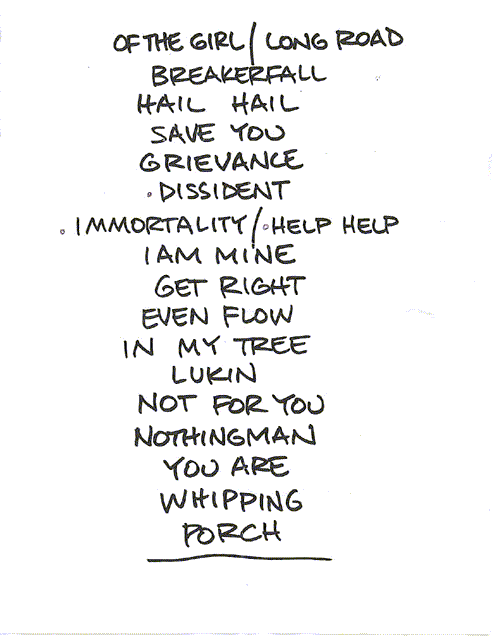 OF THE GIRL / LONG ROAD
BREAKERFALL
HAIL HAIL
SAVE YOU
GRIEVANCE
. DISSIDENT
. IMMORTALITY / . HELP HELP
I AM MINE
GET RIGHT
EVEN FLOW
IN MY TREE
LUKIN
NOT FOR YOU
NOTHINGMAN
YOU ARE
WHIPPING
PORCH